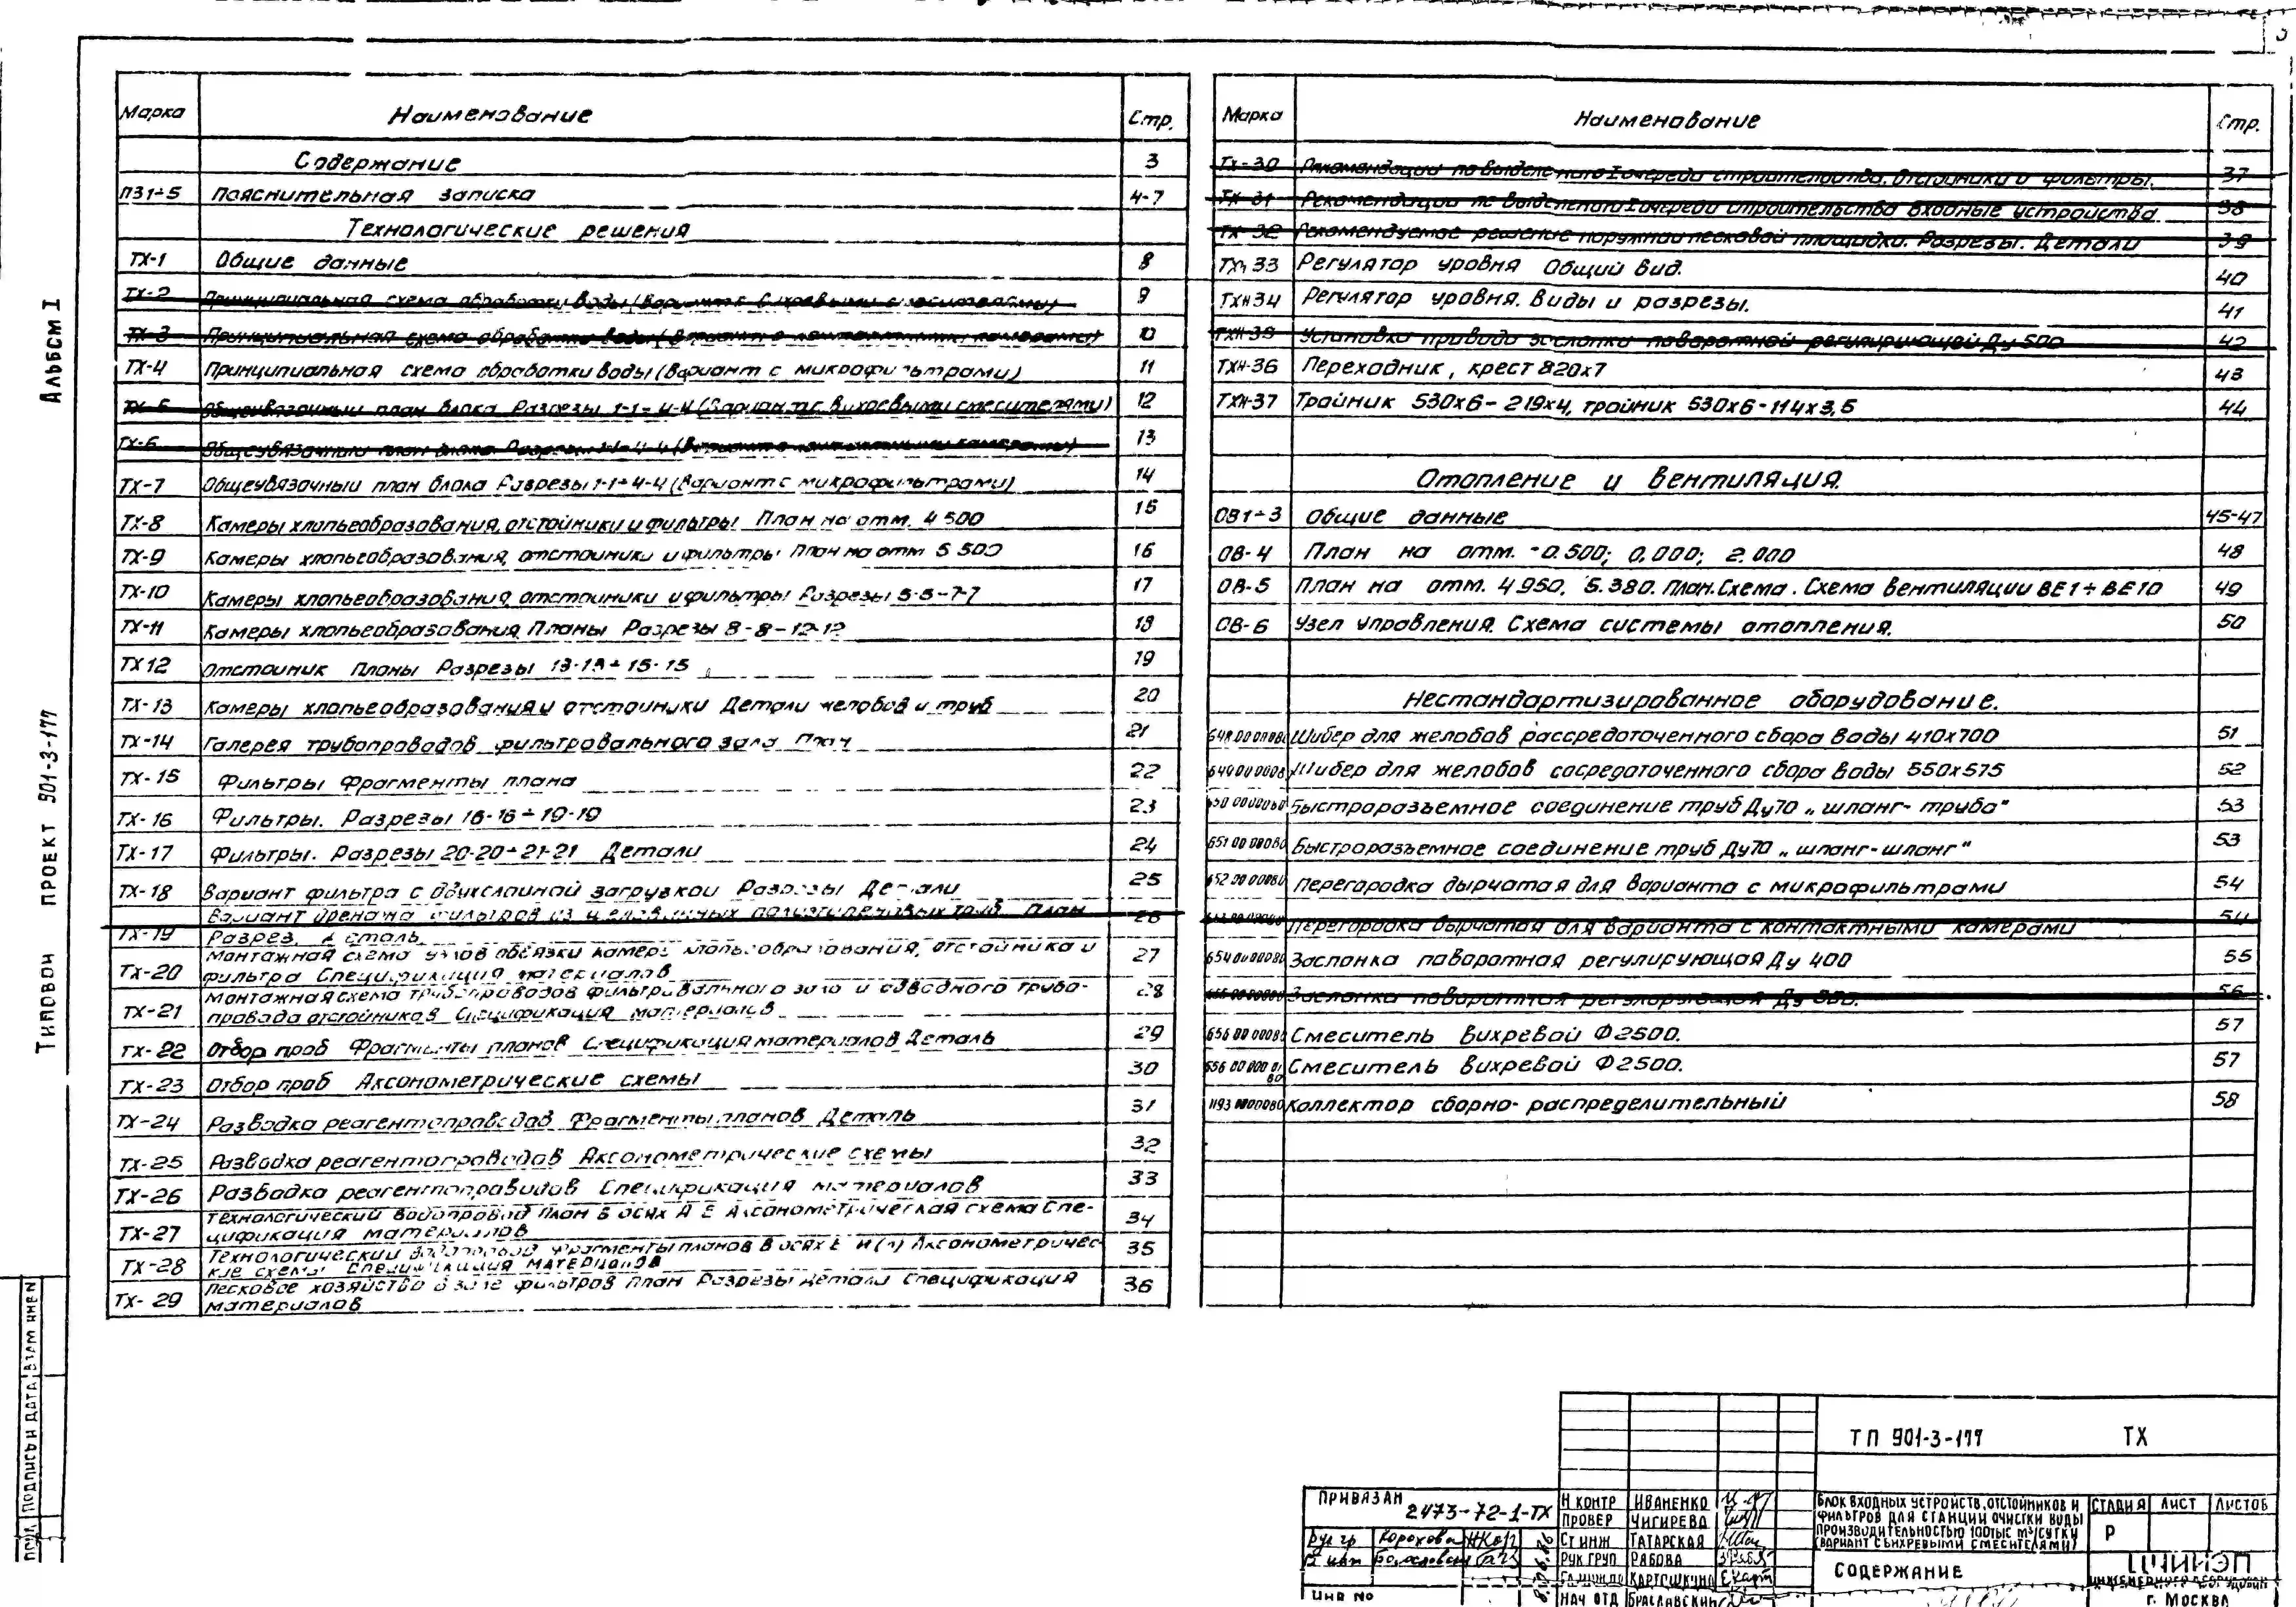 3
Альбом I
Типовой проект 901-3-177
Марка Наименование Стр.
Содержание 3
ПЗ1÷5 Пояснительная записка 4-7
Технологические решения
ТХ-1 Общие данные 8
ТХ-2 Принципиальная схема обработки воды (вариант с вихревыми смесителями) 9
ТХ-3 Принципиальная схема обработки воды (вариант с контактными камерами) 10
ТХ-4 Принципиальная схема обработки воды (вариант с микрофильтрами) 11
ТХ-5 Общеувязочный план блока Разрезы 1-1÷4-4 (вариант с вихревыми смесителями) 12
ТХ-6 Общеувязочный план блока Разрезы 1-1÷4-4 (вариант с контактными камерами) 13
ТХ-7 Общеувязочный план блока Разрезы 1-1÷4-4 (вариант с микрофильтрами) 14
ТХ-8 Камеры хлопьеобразования, отстойники и фильтры План на отм. 4 500 15
ТХ-9 Камеры хлопьеобразования, отстойники и фильтры План на отм 5 500 16
ТХ-10 Камеры хлопьеобразования, отстойники и фильтры Разрезы 5-5÷7-7 17
ТХ-11 Камеры хлопьеобразования Планы Разрезы 8-8÷12-12 18
ТХ 12 Отстойник Планы Разрезы 13-13÷15-15 19
ТХ-13 Камеры хлопьеобразования и отстойники Детали желобов и труб 20
ТХ-14 Галерея трубопроводов фильтровального зала План 21
ТХ-15 Фильтры Фрагменты плана 22
ТХ-16 Фильтры. Разрезы 16-16÷19-19 23
ТХ-17 Фильтры. Разрезы 20-20÷21-21 Детали 24
ТХ-18 Вариант фильтра с двухслойной загрузкой Разрезы Детали 25
Вариант дренажа фильтров из щелеванных полиэтиленовых труб План
ТХ-19 Разрез. Деталь 26
Монтажная схема узлов обвязки камеры хлопьеобразования, отстойника и
ТХ-20 фильтра Спецификация материалов 27
Монтажная схема трубопроводов фильтровального зала и сводного трубо-
ТХ-21 провода отстойников Спецификация материалов 28
ТХ-22 Отбор проб Фрагменты планов Спецификация материалов Деталь 29
ТХ-23 Отбор проб Аксонометрические схемы 30
ТХ-24 Разводка реагентопроводов Фрагменты планов Деталь 31
ТХ-25 Разводка реагентопроводов Аксонометрические схемы 32
ТХ-26 Разводка реагентопроводов Спецификация материалов 33
Технологический водопровод План в осях А Е Аксонометрическая схема Спе-
ТХ-27 цификация материалов 34
Технологический водопровод Фрагменты планов в осях Е И(Л) Аксонометричес-
ТХ-28 кие схемы Спецификация материалов 35
Песковое хозяйство в зале фильтров План Разрезы Детали Спецификация
ТХ-29 материалов 36
Марка Наименование Стр.
ТХ-30 Рекомендации по выделению I очереди строительства. Отстойники и фильтры. 37
ТХ-31 Рекомендации по выделению I очереди строительства Входные устройства 38
ТХ-32 Рекомендуемое решение наружной песковой площадки. Разрезы. Детали 39
ТХН 33 Регулятор уровня Общий вид. 40
ТХН 34 Регулятор уровня. Виды и разрезы. 41
ТХН-35 Установка привода заслонки поворотной регулирующей Ду 500 42
ТХН-36 Переходник, крест 820х7 43
ТХН-37 Тройник 530х6-219х4, тройник 530х6-114х3,5 44
Отопление и вентиляция.
ОВ1÷3 Общие данные 45-47
ОВ-4 План на отм. -0.500; 0.000; 2.000 48
ОВ-5 План на отм. 4 950, 5.380. План.Схема. Схема вентиляции ВЕ1÷ВЕ10 49
ОВ-6 Узел управления. Схема системы отопления. 50
Нестандартизированное оборудование.
Шибер для желобов рассредоточенного сбора воды 410х700 51
Шибер для желобов сосредоточенного сбора воды 550х575 52
Быстроразъемное соединение труб Ду70 „шланг-труба" 53
Быстроразъемное соединение труб Ду70 „шланг-шланг" 53
Перегородка дырчатая для варианта с микрофильтрами 54
Перегородка дырчатая для варианта с контактными камерами 54
Заслонка поворотная регулирующая Ду 400 55
Заслонка поворотная регулирующая Ду 500. 56
Смеситель вихревой Ф2500. 57
Смеситель вихревой Ф2500. 57
Коллектор сборно-распределительный 58
Подпись и дата Взам инв N
ТП 901-3-177 ТХ
Привязан
2473-72-1-ТХ
Рук гр Корохова
Инв No
Н контр Иваненко
Провер Чигирева
Ст инж Татарская
Рук груп Рябова
Картошкина
Нач отд Браславский
Блок входных устройств, отстойников и
фильтров для станции очистки воды
производительностью 100 тыс м³/сутки
(вариант с вихревыми смесителями)
Стадия Лист Листов
Р
Содержание
ЦНИИЭП
инженерного оборудования
г. Москва